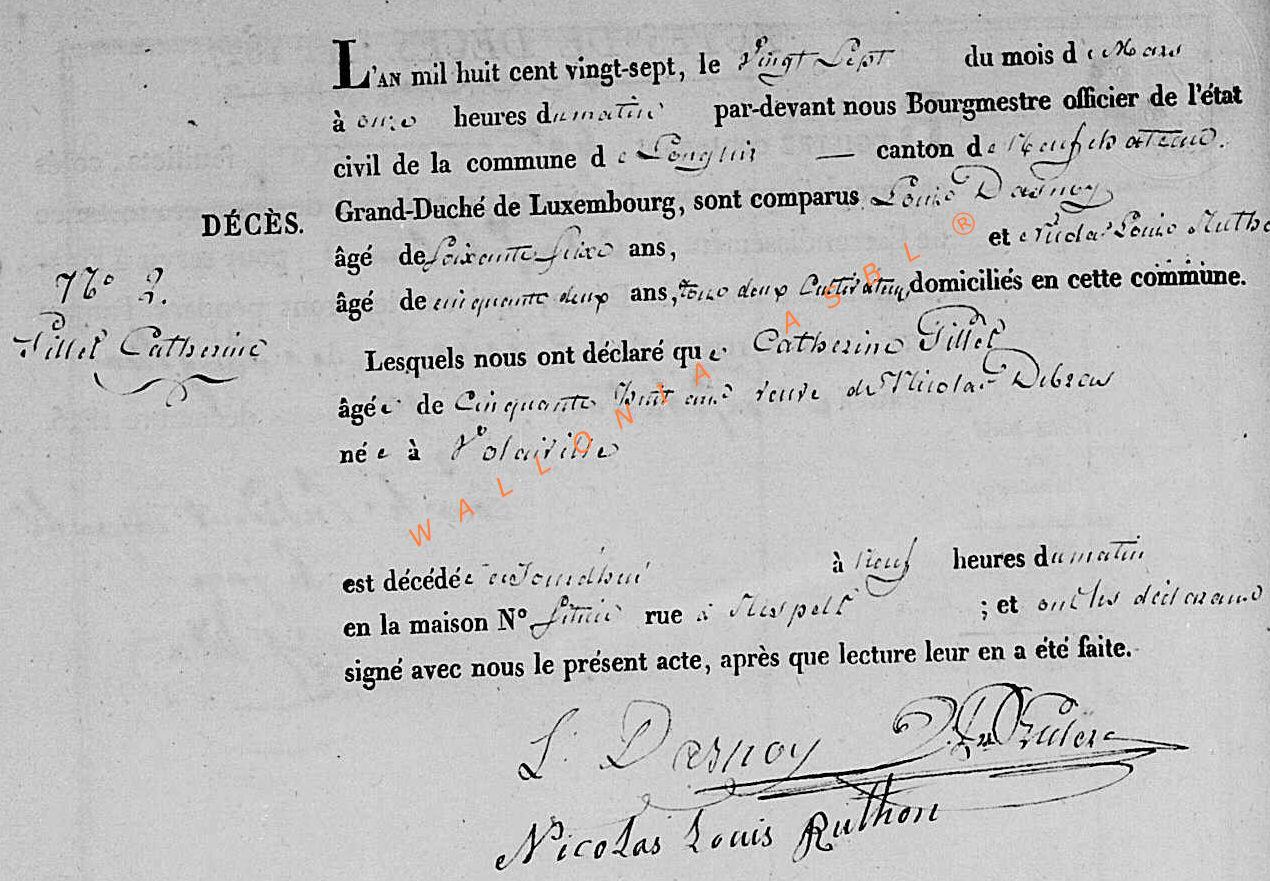 L'AN mil huit cent vingt-sept, le Vingt Sept du mois de Mars
à onze heures du matin par-devant nous Bourgmestre officier de l'état
civil de la commune de Longlier — canton de Neufchateau.
DÉCÈS.
Grand-Duché de Luxembourg, sont comparus Louis Dasnoy
âgé de soixante ans, et Nicolas Louis Ruthon
N° 2.
âgé de cinquante deux ans, tous deux Cultivateurs domiciliés en cette commune.
Tillet Catherine
Lesquels nous ont déclaré que Catherine Tillet
âgée de Cinquante huit ans veuve de Nicolas
née à Volaiville
WALLONIA ASBL ®
est décédée à neuf heures du matin
en la maison N° rue à Respelt ; et ont les déclarans
signé avec nous le présent acte, après que lecture leur en a été faite.
L. Dasnoy
Nicolas Louis Ruthon